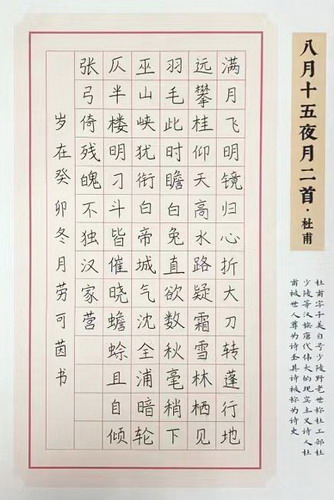 八月十五夜月二首·杜甫
杜甫字子美自号少陵野老世称杜工部杜
少陵等汉族唐代伟大的现实主义诗人杜
甫被世人尊为诗圣其诗被称为诗史
满月飞明镜归心折大刀转蓬行地
远攀桂仰天高水路疑霜雪林栖见
羽毛此时瞻白兔直欲数秋毫稍下
巫山峡犹衔白帝城气沈全浦暗轮
仄半楼明刁斗皆催晓蟾蜍且自倾
张弓倚残魄不独汉家营
岁在癸卯冬月劳可茵书